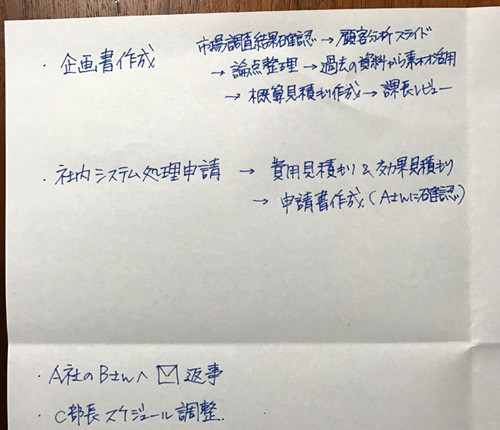 ・企画書作成 市場調査結果確認→顧客分析スライド
→論点整理→過去の資料から素材活用
→概算見積もり作成→課長レビュー
・社内システム処理申請 → 費用見積もり & 効果見積もり
→ 申請書作成(Aさんに確認)
・A社のBさんへ ✉ 返事
・C部長スケジュール調整